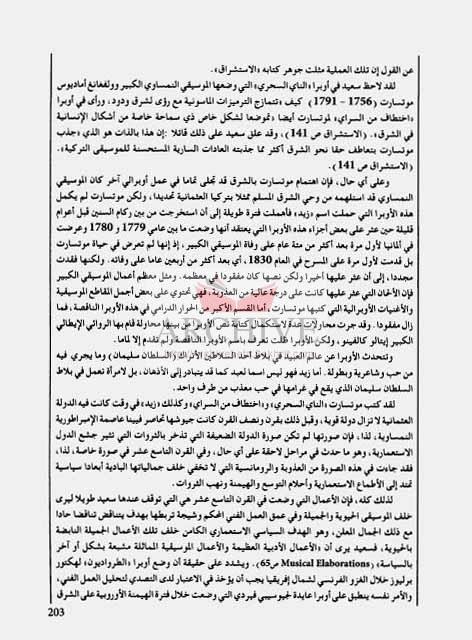 عن القول إن تلك العملية مثلت جوهر كتابه «الاستشراق».
لقد لاحظ سعيد في أوبرا «الناي السحري» التي وضعها الموسيقي النمساوي الكبير وولفغانغ أماديوس
موتسارت (1756 - 1791) كيف «تتمازج الترميزات الماسونية مع رؤى لشرق ودود، ورأى في أوبرا
«اختطاف من السراي» لموتسارت أيضا «تموضعا لشكل خاص ذي سماحة خاصة من أشكال الإنسانية
في الشرق». (الاستشراق ص 141)، وقد علق سعيد على ذلك قائلا :إن هذا بالذات هو الذي «جذب
موتسارت بتعاطف حقا نحو الشرق أكثر مما جذبته العادات السارية المستحسنة للموسيقى التركية».
(الاستشراق ص 141).
وعلى أي حال، فإن اهتمام موتسارت بالشرق قد تجلى تماما في عمل أوبرالي آخر كان الموسيقي
النمساوي قد استلهمه من وحي الشرق المسلم ممثلا بتركيا العثمانية تحديدا، ولكن موتسارت لم يكمل
هذه الأوبرا التي حملت اسم «زيد» فأهملت فترة طويلة إلى أن استخرجت من بين ركام السنين قبل أعوام
قليلة حين عثر على بعض أجزاء هذه الأوبرا التي يعتقد أنها وضعت ما بين عامي 1779 و 1780 وعرضت
في ألمانيا لأول مرة بعد أكثر من مئة عام على وفاة الموسيقي الكبير، إذ إنها لم تعرض في حياة موتسارت
بل قدمت لأول مرة على المسرح في العام 1830، أي بعد أكثر من أربعين عاما على وفاته. ولكنها فقدت
مجددا، إلى أن عثر عليها أخيرا ولكن نصها كان مفقودا في معظمه. ومثل معظم أعمال الموسيقي الكبير
فإن الألحان التي عثر عليها كانت على درجة عالية من العذوبة، فهي تحتوي على بعض أجمل المقاطع الموسيقية
والأغنيات الأوبرالية التي كتبها موتسارت، أما القسم الأكبر من الحوار الدرامي في هذه الأوبرا الناقصة، فما
زال مفقودا. وقد جرت محاولات عدة لاستكمال كتابة نص الأوبرا من بينها محاولة قام بها الروائي الإيطالي
الكبير إيتالو كالفينو، ولكن الأوبرا ظلت تعرف باسم الأوبرا الناقصة ولم تقدم إلا لماما.
وتتحدث الأوبرا عن عالم العبيد في بلاط أحد السلاطين الأتراك (السلطان سليمان) وما يجري فيه
من حب وشاعرية وبطولة. أما زيد فهو ليس اسما لعبد كما قد يتبادر إلى الأذهان، بل لامرأة تعمل في بلاط
السلطان سليمان الذي يقع في غرامها في حب معذب من طرف واحد.
لقد كتب موتسارت «الناي السحري» و«اختطاف من السراي» وكذلك «زيد» في وقت كانت فيه الدولة
العثمانية لا تزال دولة قوية، وقبل ذلك بقرن ونصف القرن كانت جيوشها تحاصر فيينا عاصمة الإمبراطورية
النمساوية، لذا، فإن صورتها لم تكن صورة الدولة الضعيفة التي تذخر بالثروات التي تثير جشع الدول
الاستعمارية، وهو ما حدث في مراحل لاحقة على أي حال، وفي القرن التاسع عشر في صورة خاصة، لذا،
فقد جاءت في هذه الصورة من العذوبة والرومانسية التي لا تخفي خلف جمالياتها البادية أبعادا سياسية
تمتد إلى الأطماع الاستعمارية وأحلام التوسع والهيمنة ونهب الثروات.
لذلك كله، فإن الأعمال التي وضعت في القرن التاسع عشر هي التي توقف عندها سعيد طويلا ليرى
خلف الموسيقى الحيوية والجميلة وفي عمق العمل الفني المحكم وشيجة تربطها بهدف يتناقض تناقضا حادا
مع ذلك الجمال المعلن، وهو الهدف السياسي الاستعماري الكامن خلف تلك الأعمال الجميلة النابضة
بالحيوية، فسعيد يرى أن «الأعمال الأدبية العظيمة والأعمال الموسيقية المماثلة مشبعة بشكل أو آخر
بالسياسة» (Musical Elaborations ص65). ويشدد على حقيقة أن وضع أوبرا «الطرواديون» لهكتور
برليوز خلال الغزو الفرنسي لشمال إفريقيا يجب أن يؤخذ في الاعتبار لدى التصدي لتحليل العمل الفني،
والأمر نفسه ينطبق على أوبرا عايدة لجيوسيبي فيردي التي وضعت خلال فترة الهيمنة الأوروبية على الشرق
203
ARCHIVE